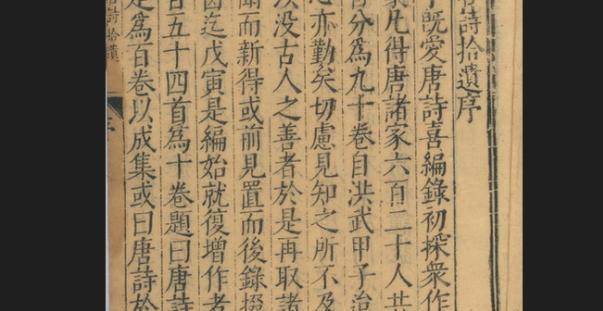 詩拾遺序
既愛唐詩喜編錄初採衆作
家凡得唐諸家六百二十人共
分爲九十卷自洪武甲子
心亦勤矣切慮見知之所不及
沒古人之善者於是再取諸
聞而新得或前見置而後錄掇
迄戊寅是編始就復增作者
五十四首爲十卷題曰唐詩
是爲百卷以成集或曰唐詩於
詩拾遺
序